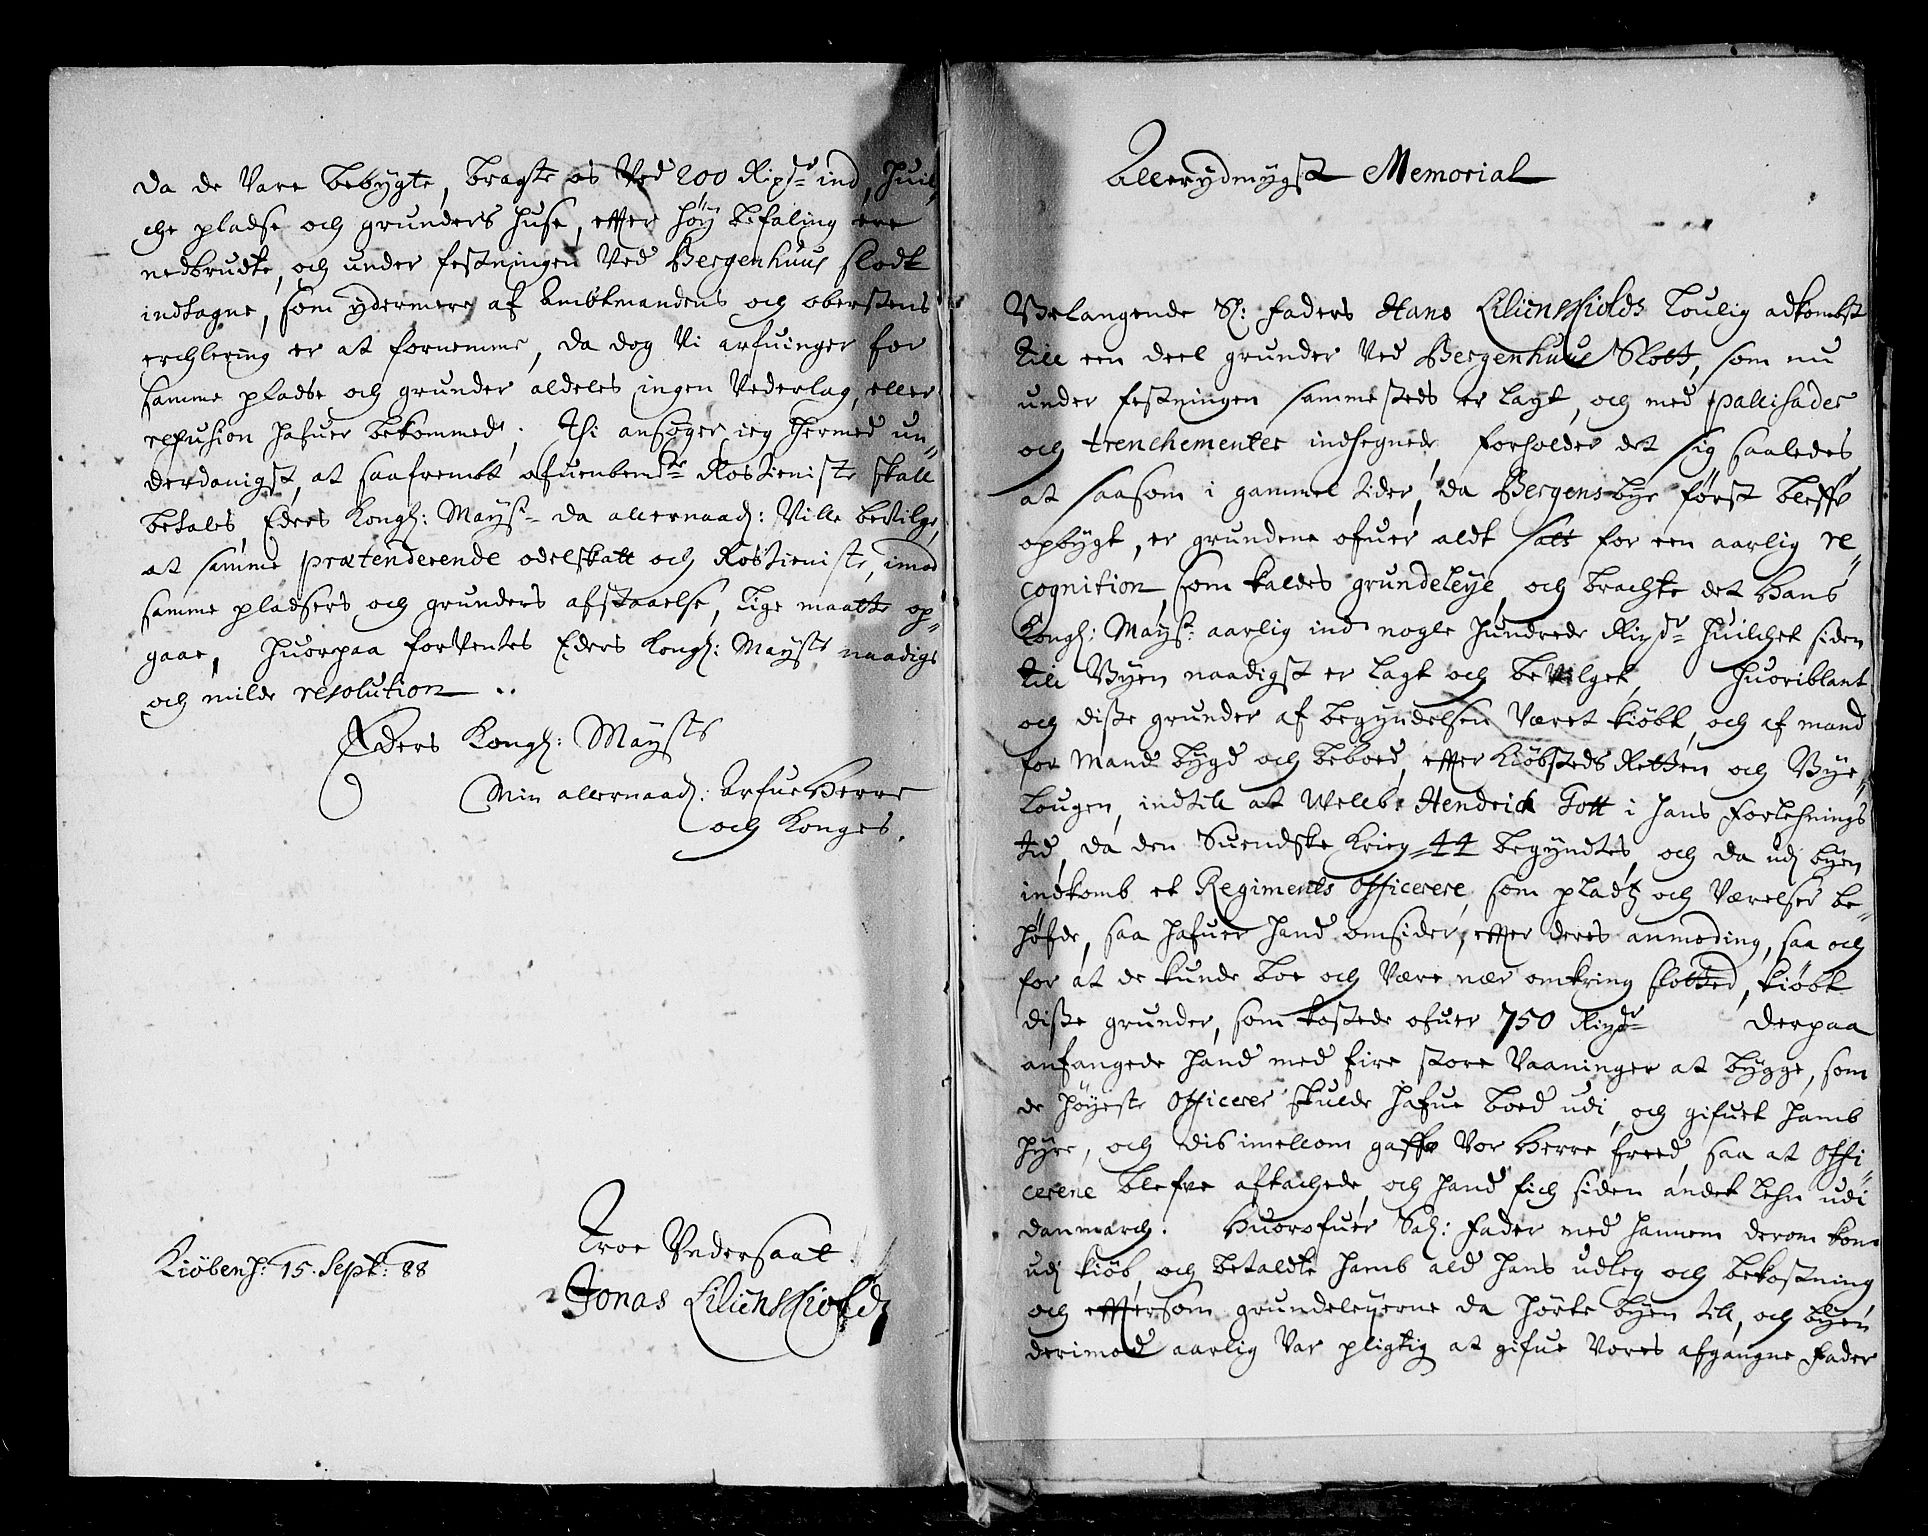 da de Vare bebygte, bragte os Ved 200 Rixdr ind, Huil,
che pladse och grunders huse, effter høy befaling ere
nedbrudte, och under festningen Ved Bergenhuus slodt
indtagne, som ydermere af Ambtmandens och oberstens
erchlering er at fornemme, da dog Vi arfuinger for
samme pladse och grunder aldeles ingen Vederlag, eller
refusion hafuer bekommed; Thi ansøger ieg hermed un„
derdanigst, at saafrembt ofuenbemte Rostieniste skall
betales, Eders Kongl: Mayst da allernaad: Ville bevilge,
at samme prætenderende odelskatt och Rostieniste, imod
samme pladsers och grunders afstaaelse, lige maatte op„
gaae, Huorpaa forVentes Eders Kongl: Maysts naadige
och milde resolution ..
Eders Kongl: Maysts
Min allernaad: Arfue Herre
och Konges.
Troe Undersaat
Kiøbenh: 15. Sept: 88
Jonas Lilienskiold
Allerydmygst Memorial
Belangende Sl: Faders Hans Lilienskiolds Loulig adkombst
till een deel grunder Ved Bergenhuus Slott, som nu
under festningen sammesteds er lagt, och med pallisader
och trenchementer indhegnede, forholder det sig saaledes,
at saasom i gammel tider, da Bergens bye først bleffe
opbygt, er grundene ofuer aldt satt for een aarlig re„
cognition, som kaldes grundeleye, och brachte det Hans
Kongl: Mayst: aarlig ind nogle hundrede Rixdr Huilchet siden
till Byen naadigst er lagt och bevilget, Huoriblant
och disse grunder af begyndelsen Været kiøbt, och af mand
for mand bygd och beboed, effter Kiøbsteds Retten och Bye„
Lougen, indtil at Welb: Hendrich Tott i hans Forlehnings
tid, da den Suendske Krieg 44 begyndtes, och da udj byen
indkomb et Regiments Officerere, som pladtz och Værelser be„
høfde, saa hafuer hand omsider, effter deres anmoding, saa och
for at de kunde boe och Være nær omkring slotted, kiøbt
disse grunder, som kostede ofuer 750 Rixdr Derpaa
anfangede hand med fire store Vaaninger at bygge, som
de høyeste Officerer skulde hafue boed udi, och gifuet hamb
hyre, och dis imellom gaffe Vor Herre freed, saa at Offi„
cerene blefve aftachede, och hand fich siden andet Lehn udi
danmarch. Huorofuer Sal: Fader med hannem derom kom
udj kiøb, och betaldte hamb ald hans udleg och bekostning
och efftersom grundeleyerne da hørte byen till, och byen
derimod aarlig Var pligtig at gifue Vores afgangne Fader